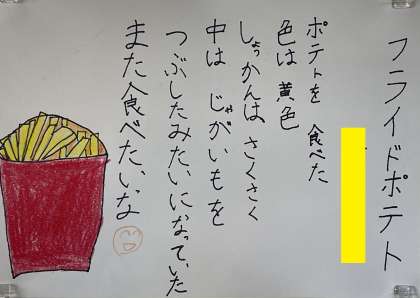 フライドポテト
ポテトを 食べた
色は 黄色
しょっかんは さくさく
中は じゃがいもを
つぶしたみたいになっていた
また食べたいな